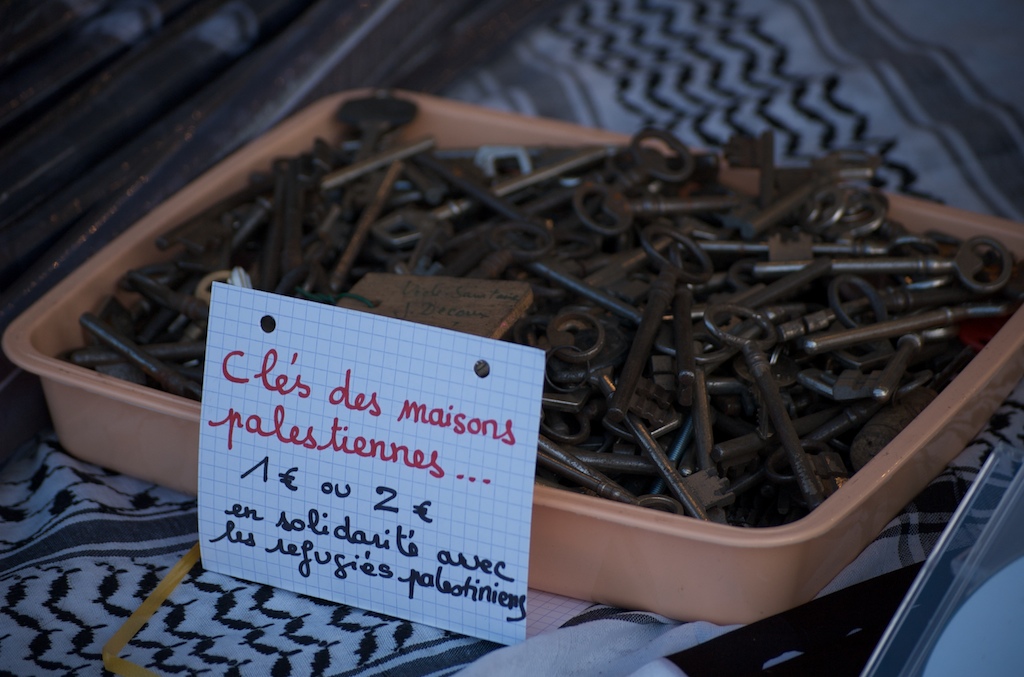 Clés des maisons
palestiennes...
1 € ou 2 €
en solidarité avec
les refugiés palestiniens